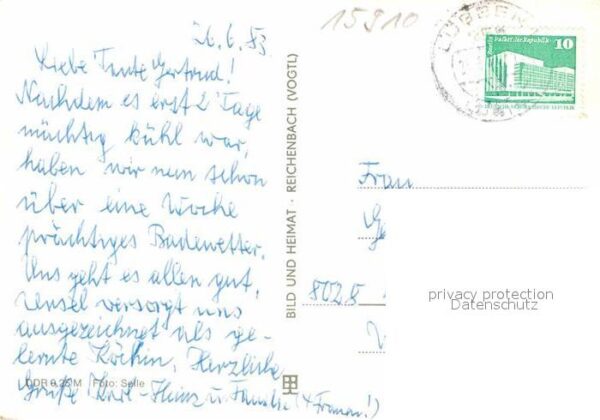 26.6.83
Liebe Tante Gertrud!
Nachdem es erst 2 Tage
mächtig kühl war,
haben wir nun schon
über eine Woche
prächtiges Badewetter.
Uns geht es allen gut,
versorgt uns
ausgezeichnet als ge-
lernte Köchin. Herzliche
Grüße Karl-Heinz u. Familie
DDR 0,25 M Foto: Selle
BILD UND HEIMAT · REICHENBACH (VOGTL)
15910
LÜBBEN
Berlin Palast der Republik
10
Frau
8028
privacy protection
Datenschutz